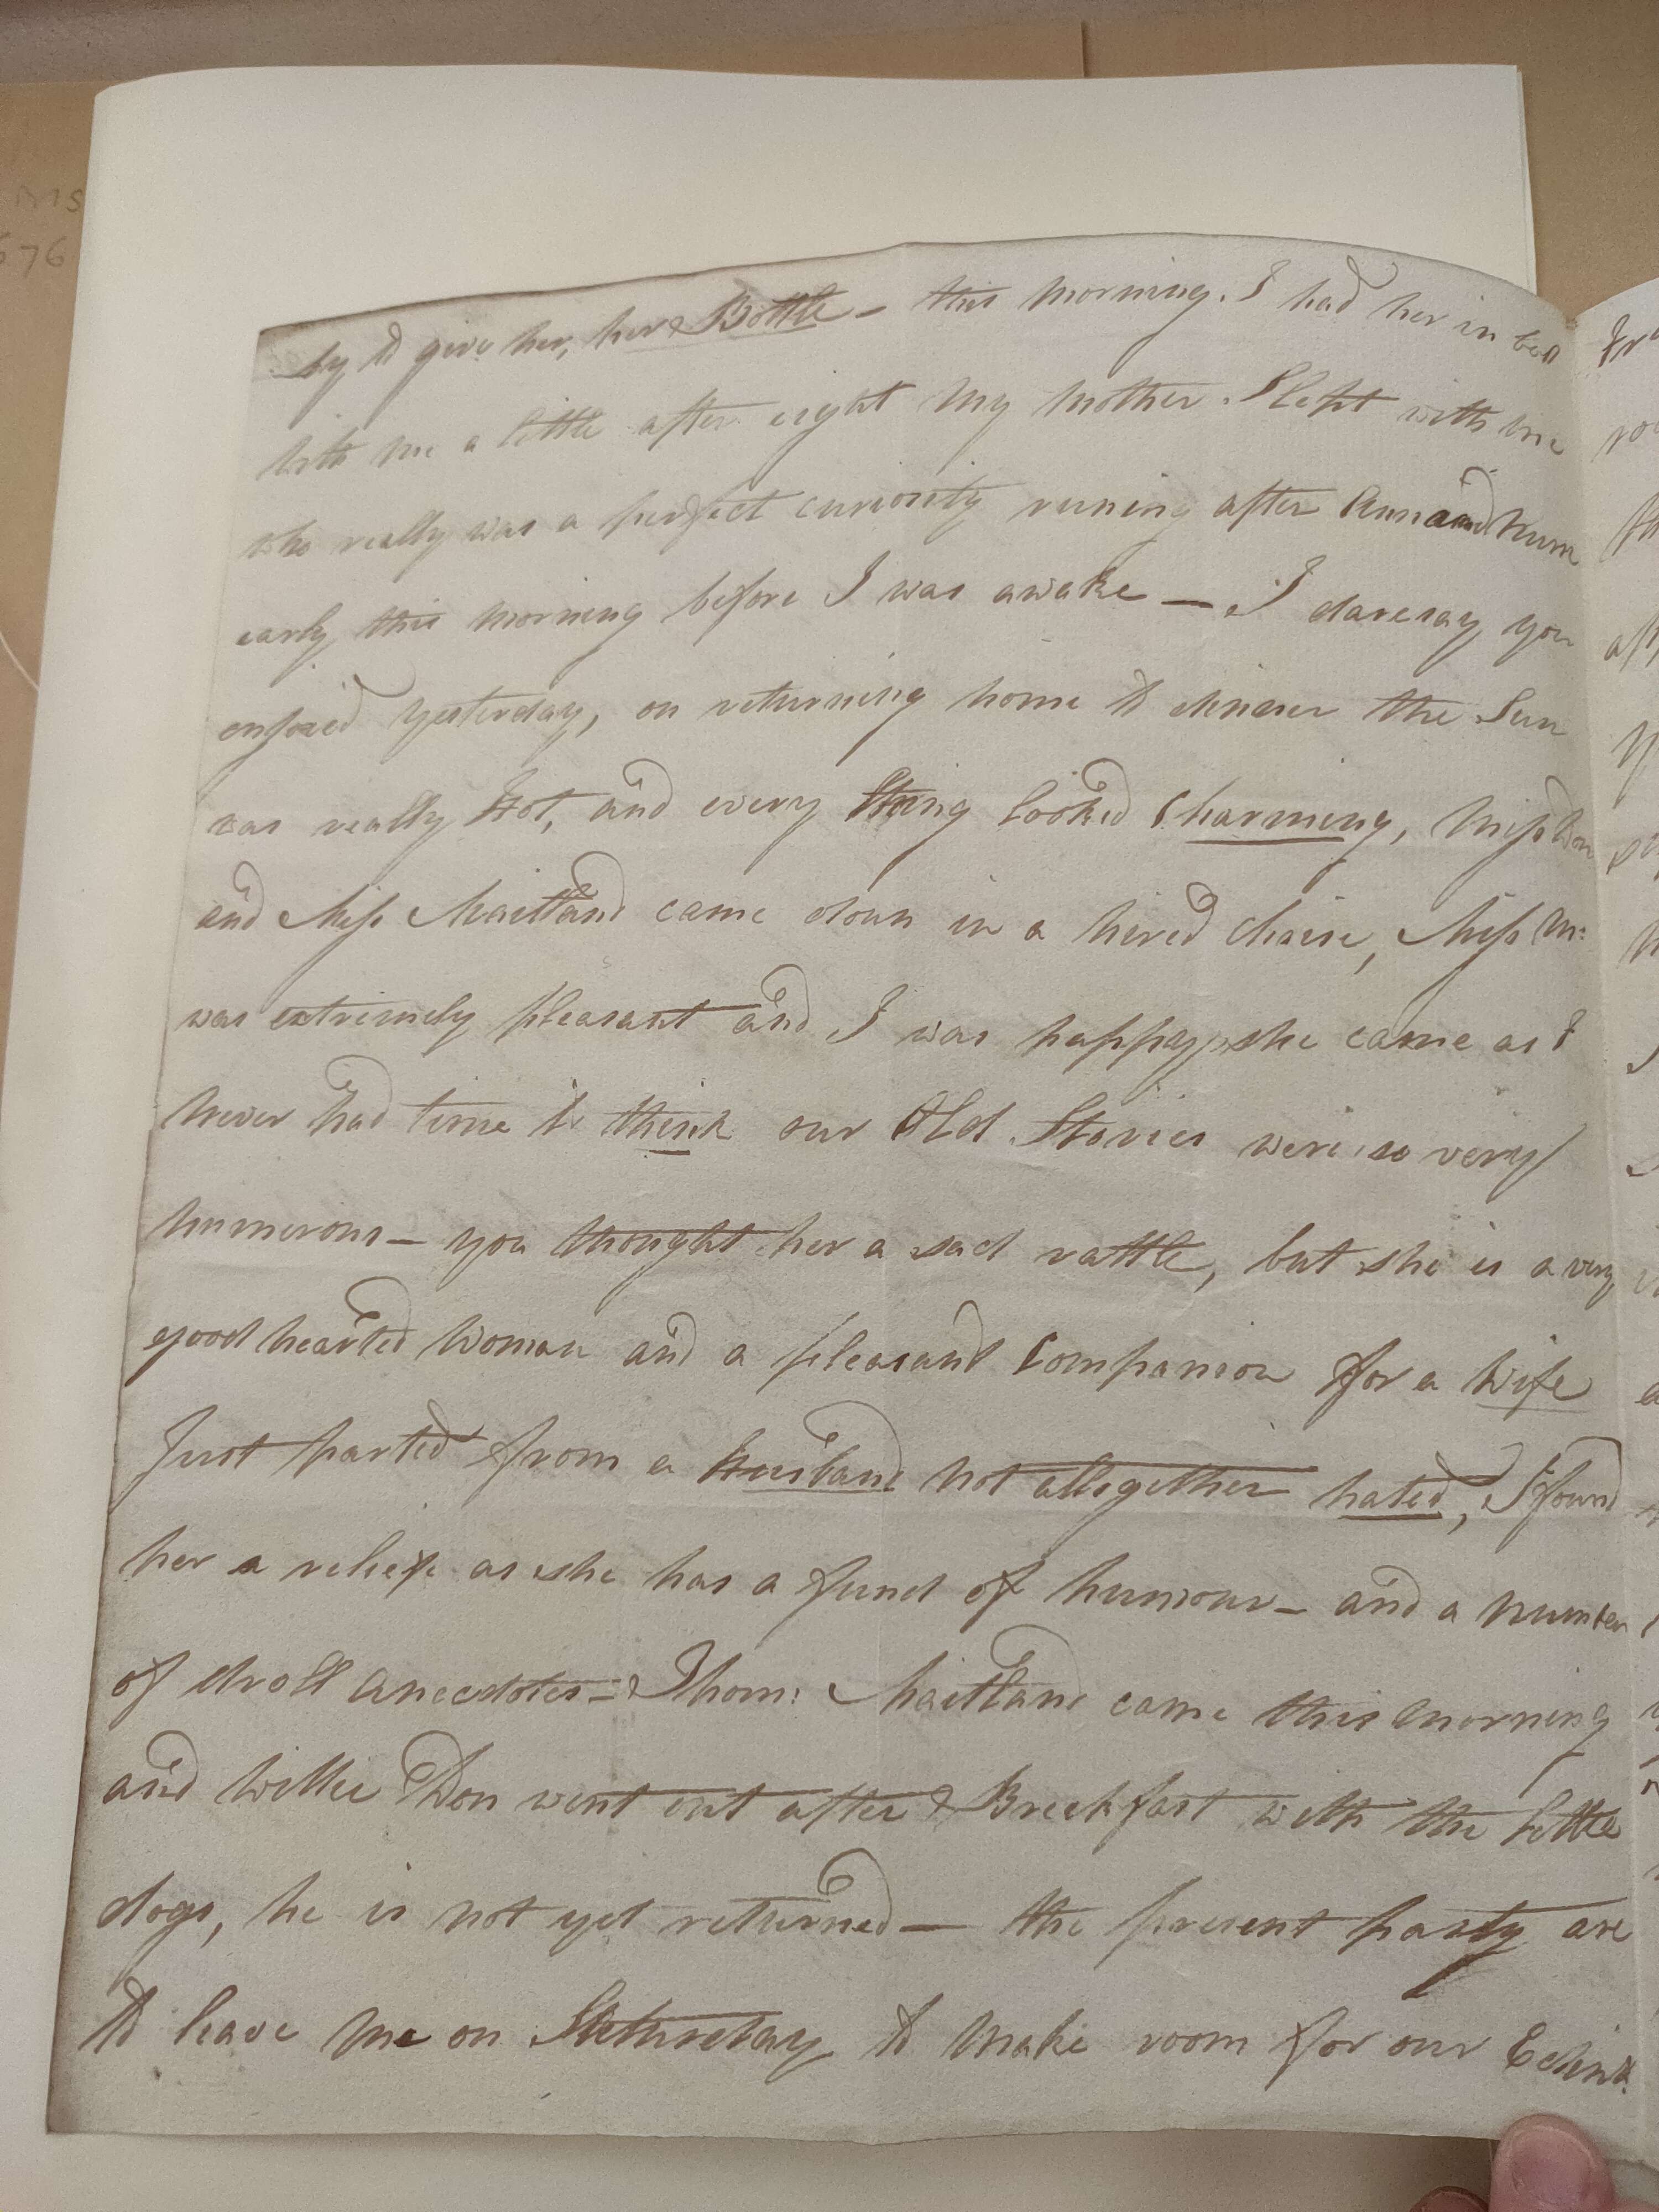 by to give her, her Bottle - this morning. I had her in bed
with me a little after eight my mother Slept with me
who really was a perfect curiosity runing after Ann and Nurse
early this morning before I was awake — I daresay you
enjoied yesterday, on returning home to dinner the Sun
was really Hot, and every thing looked Charming, Miss Don
and Miss Maitland came down in a hired Chaise, Miss M:
was extremely pleasant and I was happy she came as I
never had time to think our Old Stories were so very
numerous - you thought her a sad rattle, but she is a very
good hearted woman and a pleasant Companion for a wife
Just parted from a husband not altogether hated, I found
her a relief as she has a fund of humour - and a number
of droll anecdotes - Thom: Maitland came this morning
and Willie Don went out after Breekfast with the little
dogs, he is not yet returned — the present party are
to leave me on Saturday to make room for our Edinr.
MS
676